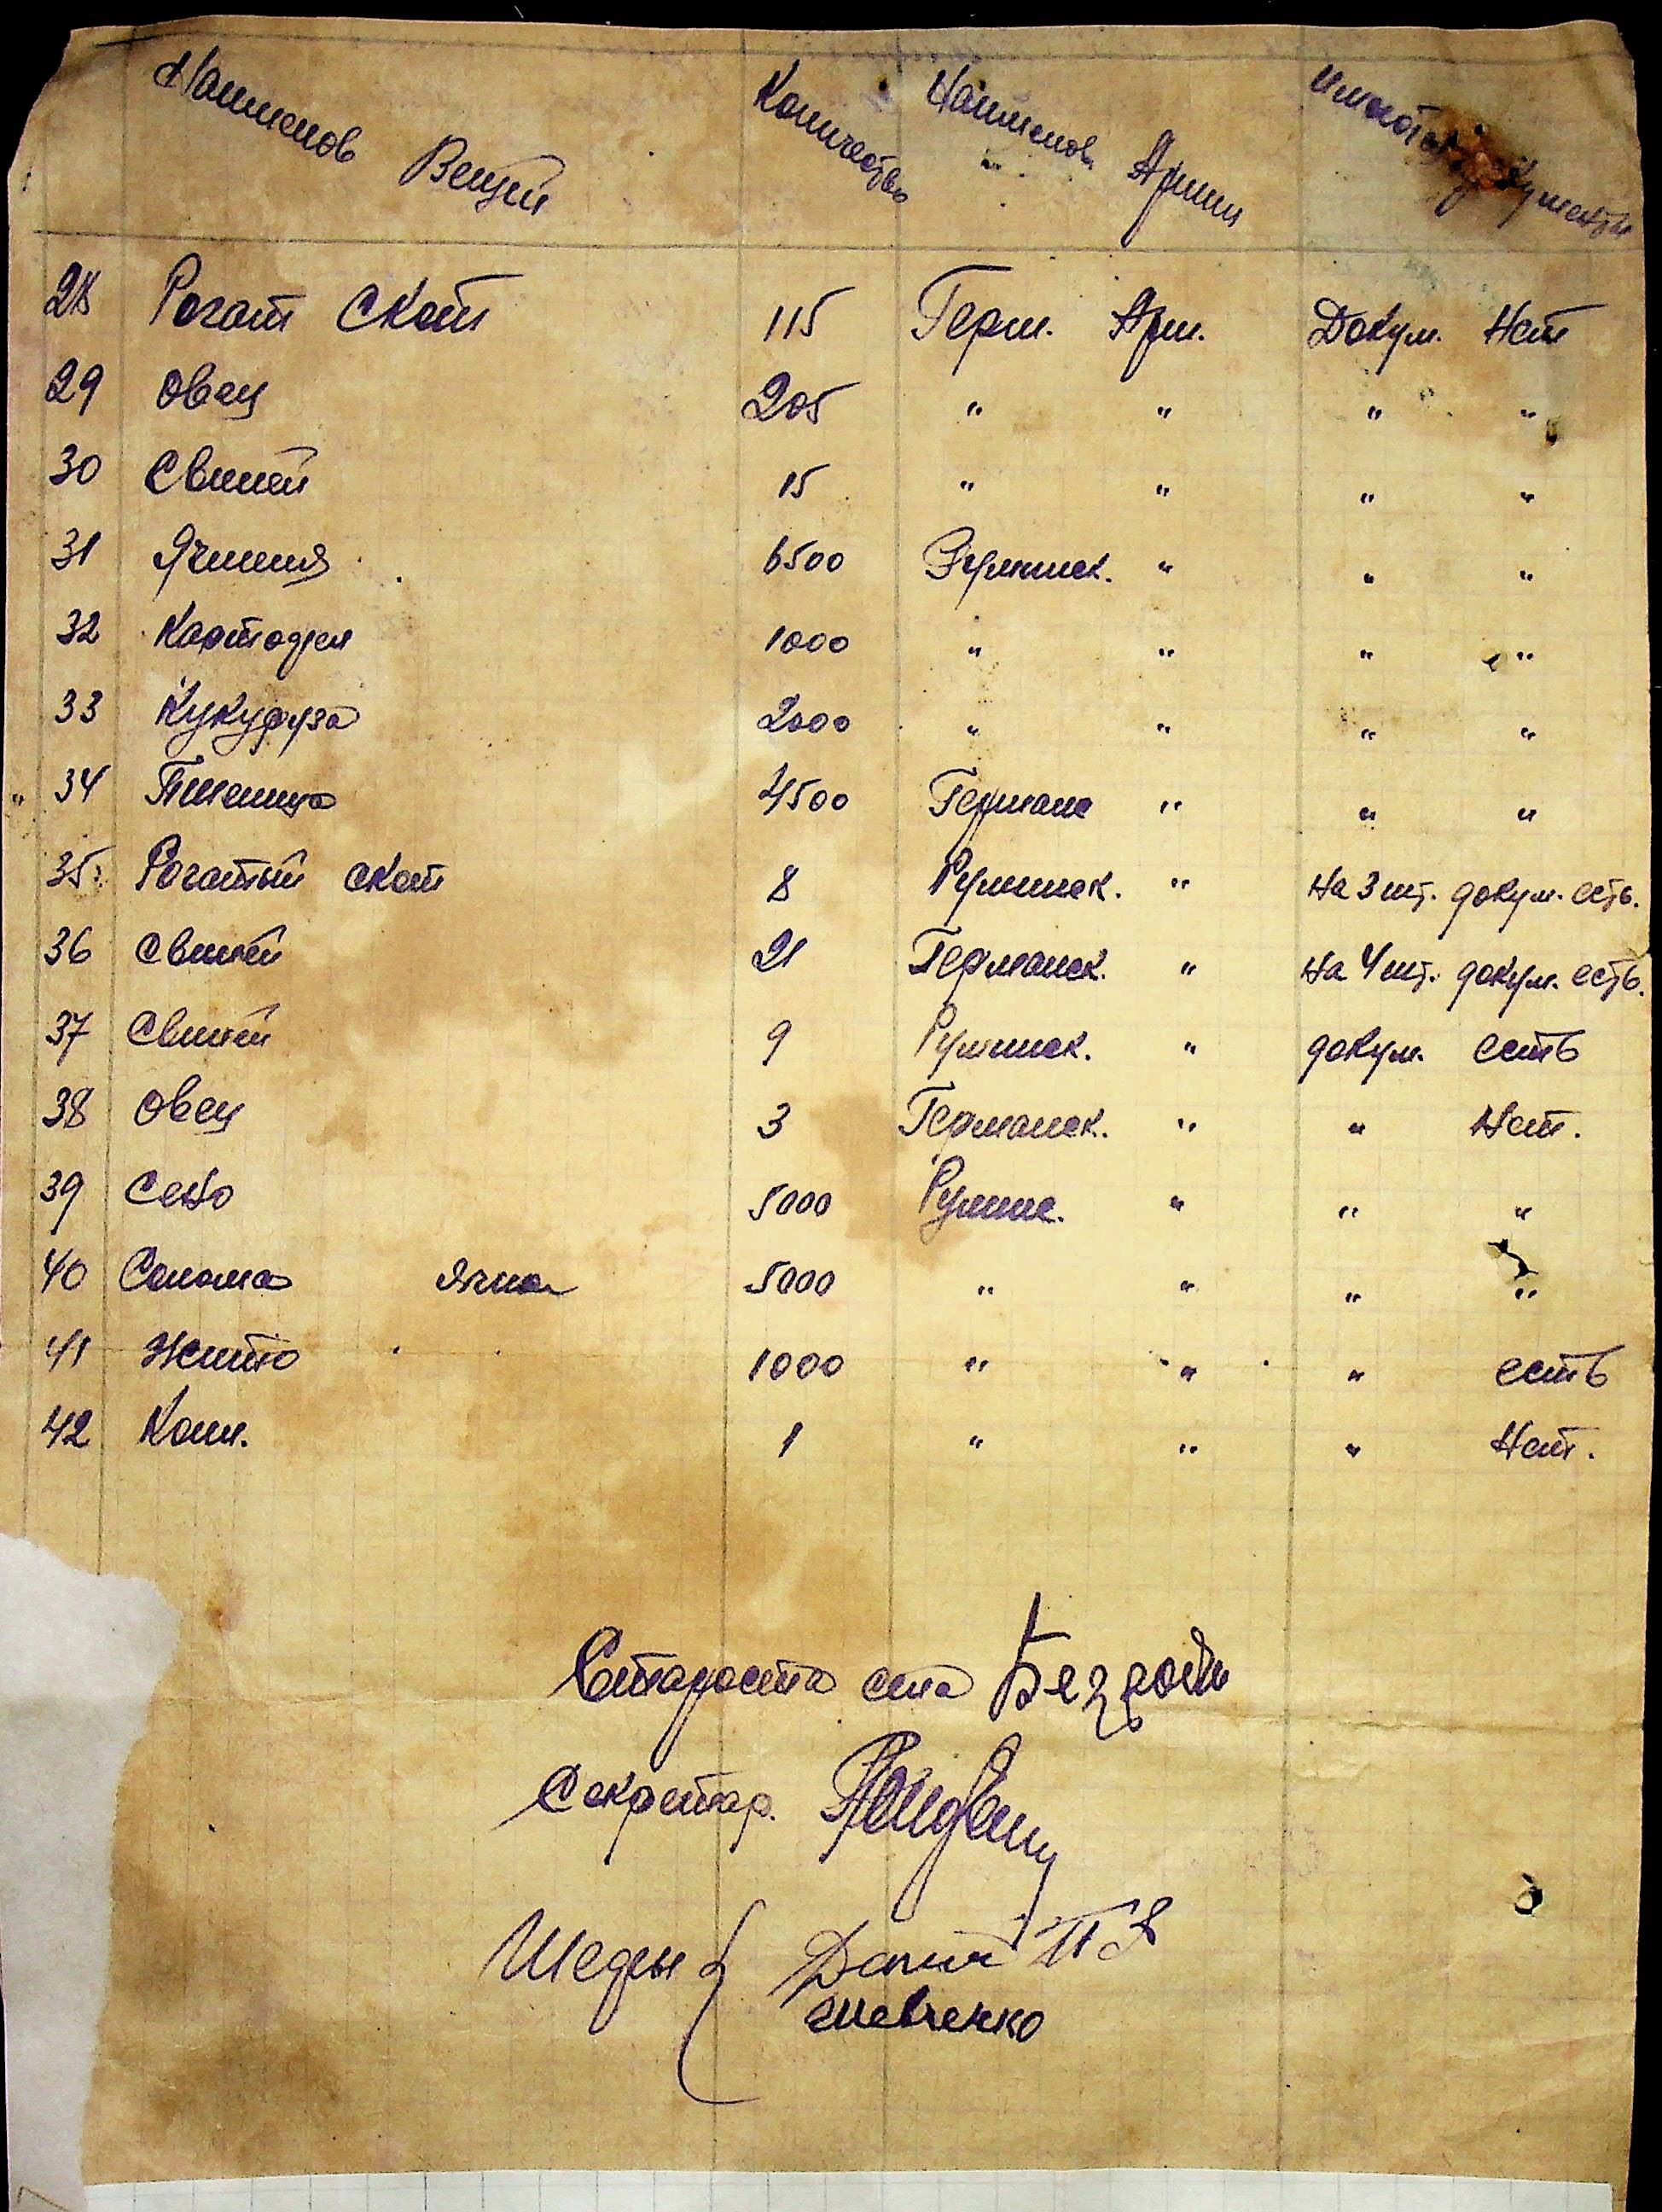 Наименов Вещей Количество Наименов. Армии Имеются документы
28 Рогат Скот 115 Герм. Арм. Докум. Нет
29 Овец 205 " " " "
30 Свиней 15 " " " "
31 Ячменя 6500 Румынск. " " "
32 Картофел 1000 " " " "
33 Кукуруза 2000 " " " "
" 34 Пшеница 4500 Германс " " "
35 Рогатый скот 8 Румынск. " На 3 шт. докум. есть.
36 Свиней 21 Германск. " На 4 шт. докум. есть.
37 Свиней 9 Румынск. " докум. есть
38 Овец 3 Германск. " " Нет.
39 Сено 5000 Румынс. " " "
40 Солома Ячная 5000 " " " "
41 Жито 1000 " " " есть
42 Кон. 1 " " " Нет.
Староста села
Секретар.
Шефы { П Я
шевченко